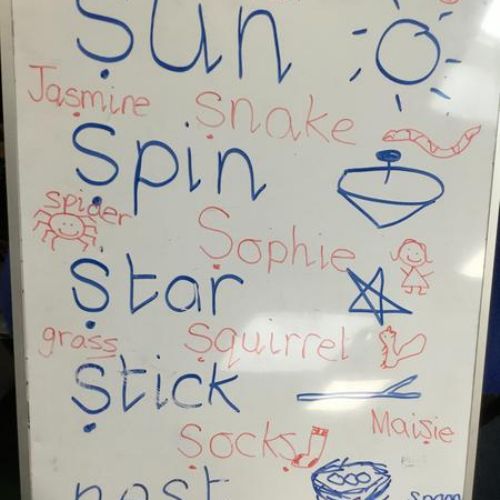 Sun
Jasmine snake
Spin
spider
Sophie
Star
grass Squirrel
Stick
Maisie
Socks
nest
spoon